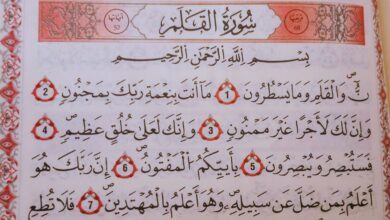 ترتيبها ٦٨ سُورَةُ القَلَمِ آياتها ٥٢
بِسْمِ اللَّهِ الرَّحْمَٰنِ الرَّحِيمِ
نٓ وَالْقَلَمِ وَمَا يَسْطُرُونَ ١ مَا أَنتَ بِنِعْمَةِ رَبِّكَ بِمَجْنُونٍ ٢
وَإِنَّ لَكَ لَأَجْرًا غَيْرَ مَمْنُونٍ ٣ وَإِنَّكَ لَعَلَىٰ خُلُقٍ عَظِيمٍ ٤
فَسَتُبْصِرُ وَيُبْصِرُونَ ٥ بِأَييِّكُمُ الْمَفْتُونُ ٦ إِنَّ رَبَّكَ هُوَ
أَعْلَمُ بِمَن ضَلَّ عَن سَبِيلِهِ وَهُوَ أَعْلَمُ بِالْمُهْتَدِينَ ٧ فَلَا تُطِعِ